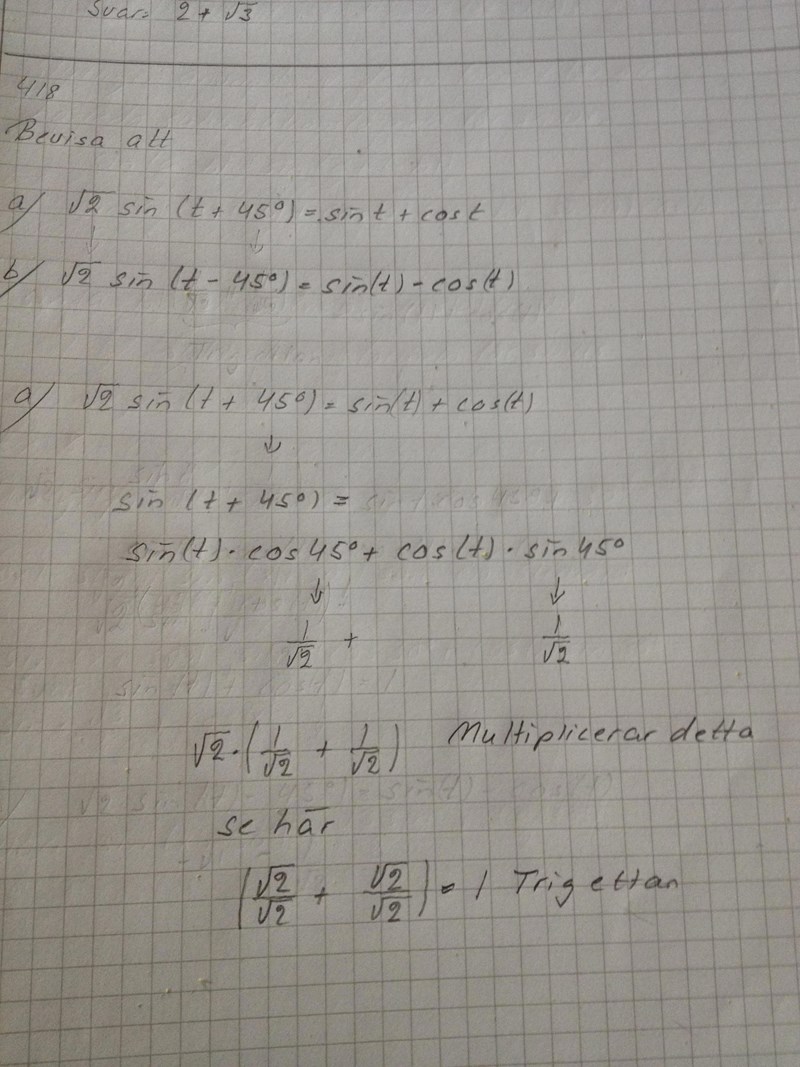 Svar: 2 + √3
418
Bevisa att
a) √2 sin (t + 45°) = sin t + cos t
↓ ↓
b) √2 sin (t - 45°) = sin(t) - cos(t)
a) √2 sin (t + 45°) = sin(t) + cos(t)
↓
sin (t + 45°) =
sin(t) · cos 45° + cos(t) · sin 45°
↓ ↓
1/√2 + 1/√2
√2 · (1/√2 + 1/√2) Multiplicerar detta
se här
(√2/√2 + √2/√2) = 1 Trig ettan